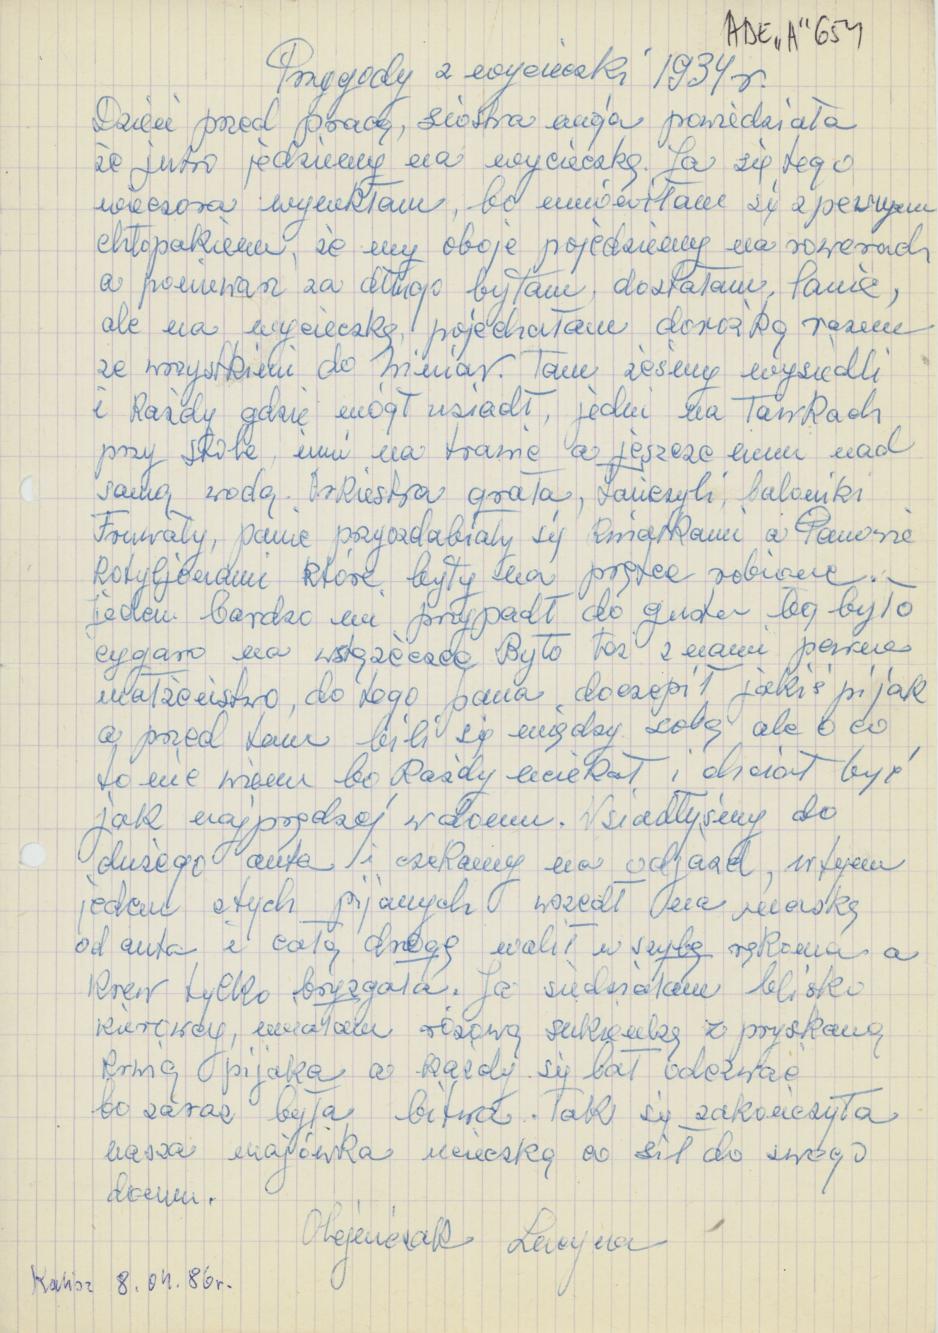 ADE „A" 654
Przygody z wycieczki 1934 r.
Dzień przed pracą, siostra moja powiedziała
że jutro jedziemy na wycieczkę. Ja się tego
wieczora wymkłam, bo umówiłam się z pewnym
chłopakiem, że my oboje pojedziemy na rowerach
a poniewarz za długo byłam, dostałam lanie,
ale na wycieczkę, pojechałam dorożką razem
ze wszystkimi do Winiar. Tam żeśmy wysiedli
i Każdy gdzie mógł usiadł, jedni na ławkach
przy stole, inni na trawie a jeszcze inni nad
samą wodą. Orkiestra grała, tańczyli, baloniki
Fruwały, panie przyozdabiały się Kwiatkami a Panowie
Kotyljonami które były na prędce robione..
jeden bardzo mi przypadł do gustu bo było
cygaro na wstążeczce Było tez z nami pewne
małżeństwo, do tego pana doczepił jakiś pijak
a przed tem bili się między sobą ale o co
to nie wiem bo Każdy uciekał i chciał być
jak najprędzej w domu. Wsiedlyśmy do
dużego auta i czekamy na odjazd, w tym
jeden z tych pijanych wszedł na maskę
od auta i całą drogę walił w szybę rękoma a
Krew tylko bryzgała. Ja siedziałam blisko
kierowcy, miałam różową sukienkę z pryskaną
krwią pijaka a każdy się bał odezwać
bo zaraz była bitwa. Tak się zakończyła
nasza majówka ucieczką co sił do swego
domu.
Olejniczak Lucyna
Kalisz 8.04.86r.